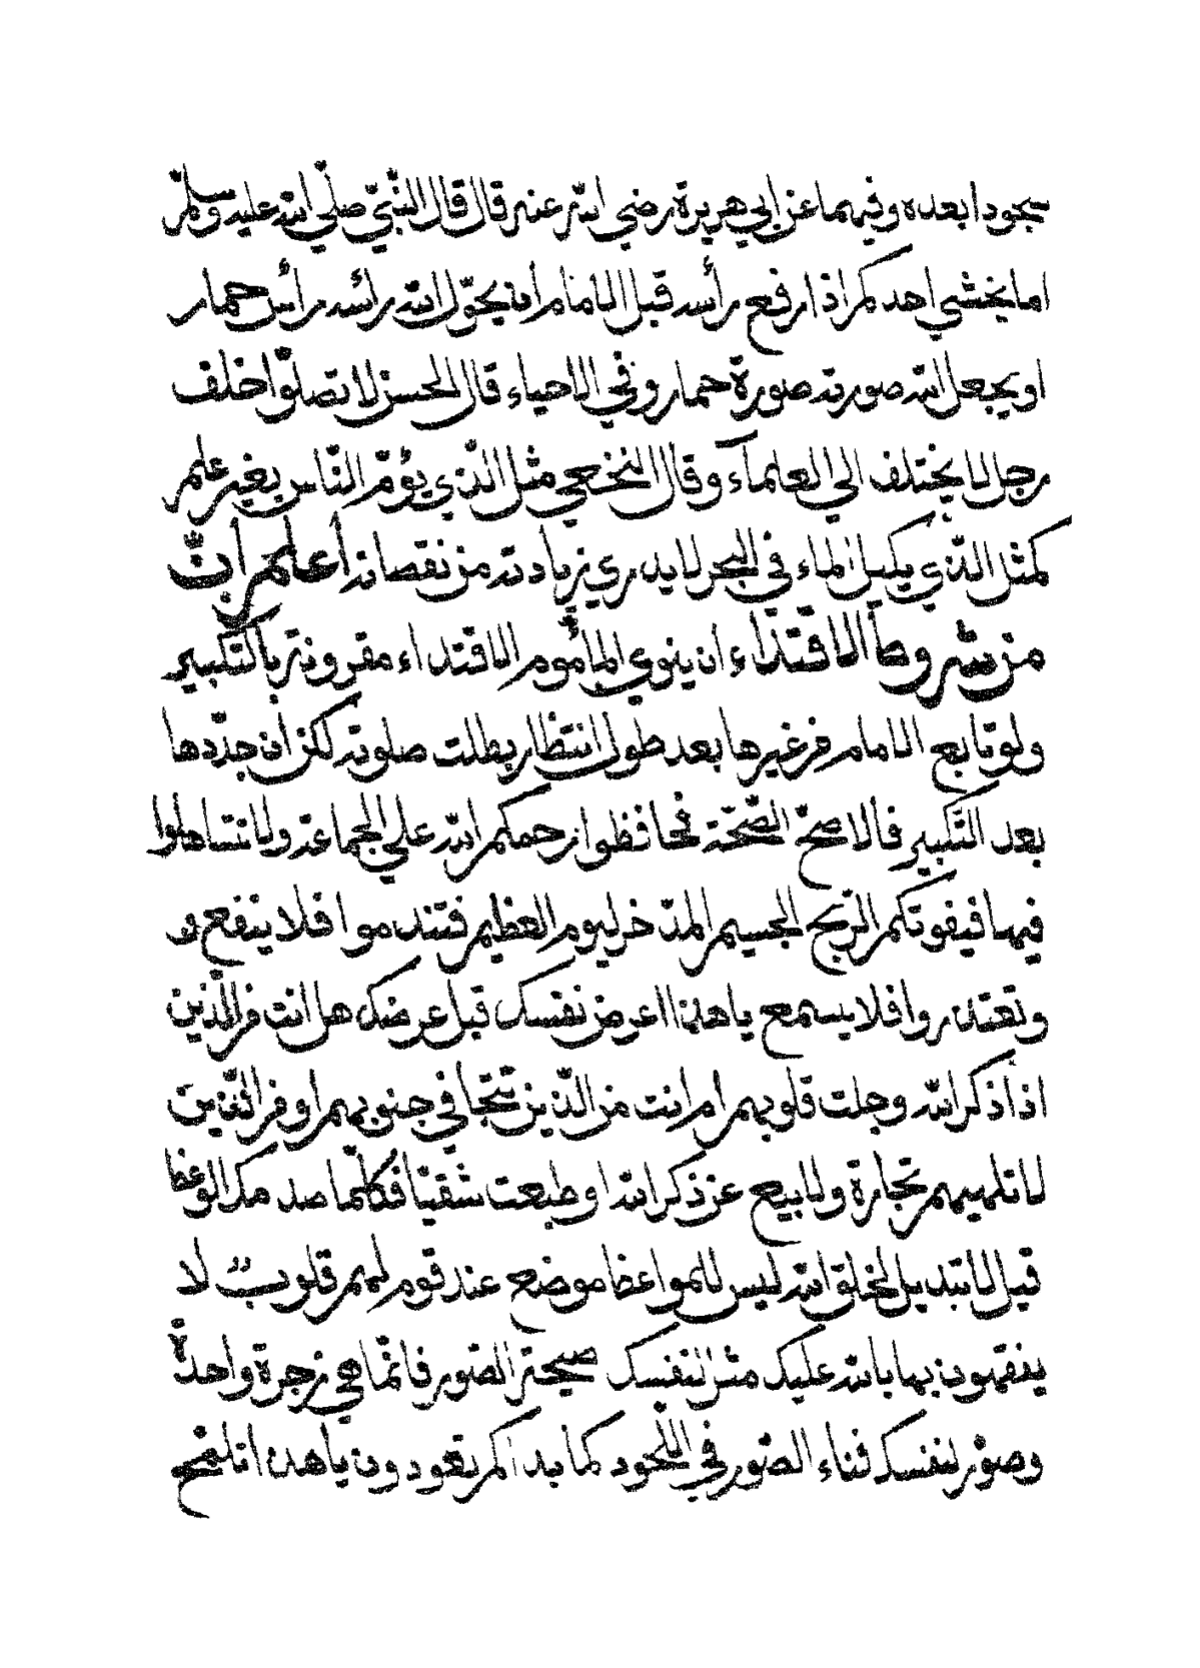 سجودا بعده وفيهما عن ابي هريرة رضي الله عنه قال قال النّبيّ صلّي الله عليه وسلّم
اما يخشي احدكم اذا رفع رأسه قبل الامام أن يحوّل الله رأسه رأس حمار
او يجعل الله صورته صورة حمار وفي الاحياء قال الحسن لا تصلّوا خلف
رجل لا يختلف الي العلمآء وقال النخعي مثل الّذي يؤمّ النّاس بغير علم
كمثل الّذي يكيل الماء في البحر لا يدري زيادته من نقصانه أعلم أنّ
من شروط الاقتداء ان ينوي المأموم الاقتداء مقرونة بالتّكبير
ولو تابع الامام في غيرها بعد طول انتظار بطلت صلوته لكن ان جدّدها
بعد التّكبير فالاصحّ الصّحّة فحافظوا رحمكم الله علي الجماعة ولا تتساهلوا
فيها فيفوتكم الرّبح الجسيم المدّخر ليوم العظيم فتندموا فلا ينفع و
وتعتذروا فلا يسمع يا هذا اعرض نفسك قبل عرضك هل انت من الّذين
اذا ذكر الله وجلت قلوبهم ام انت من الّذين تتّجافي جنوبهم او من الّذين
لا تلهيهم تجارة ولا بيع عن ذكر الله او طبعت شقيّا فكلّما صدمك الوعظ
قيل لا تبديل لخلق الله ليس للمواعظ موضع عند قوم لهم قلوب لا
يفقهون بها بالله عليك مثّل لنفسك صيحة الصّور فانّما هي زجرة واحدة
وصوّر لنفسك فناء الصّور في اللّحود كما بدأكم تعودون يا هذا اتلمّح